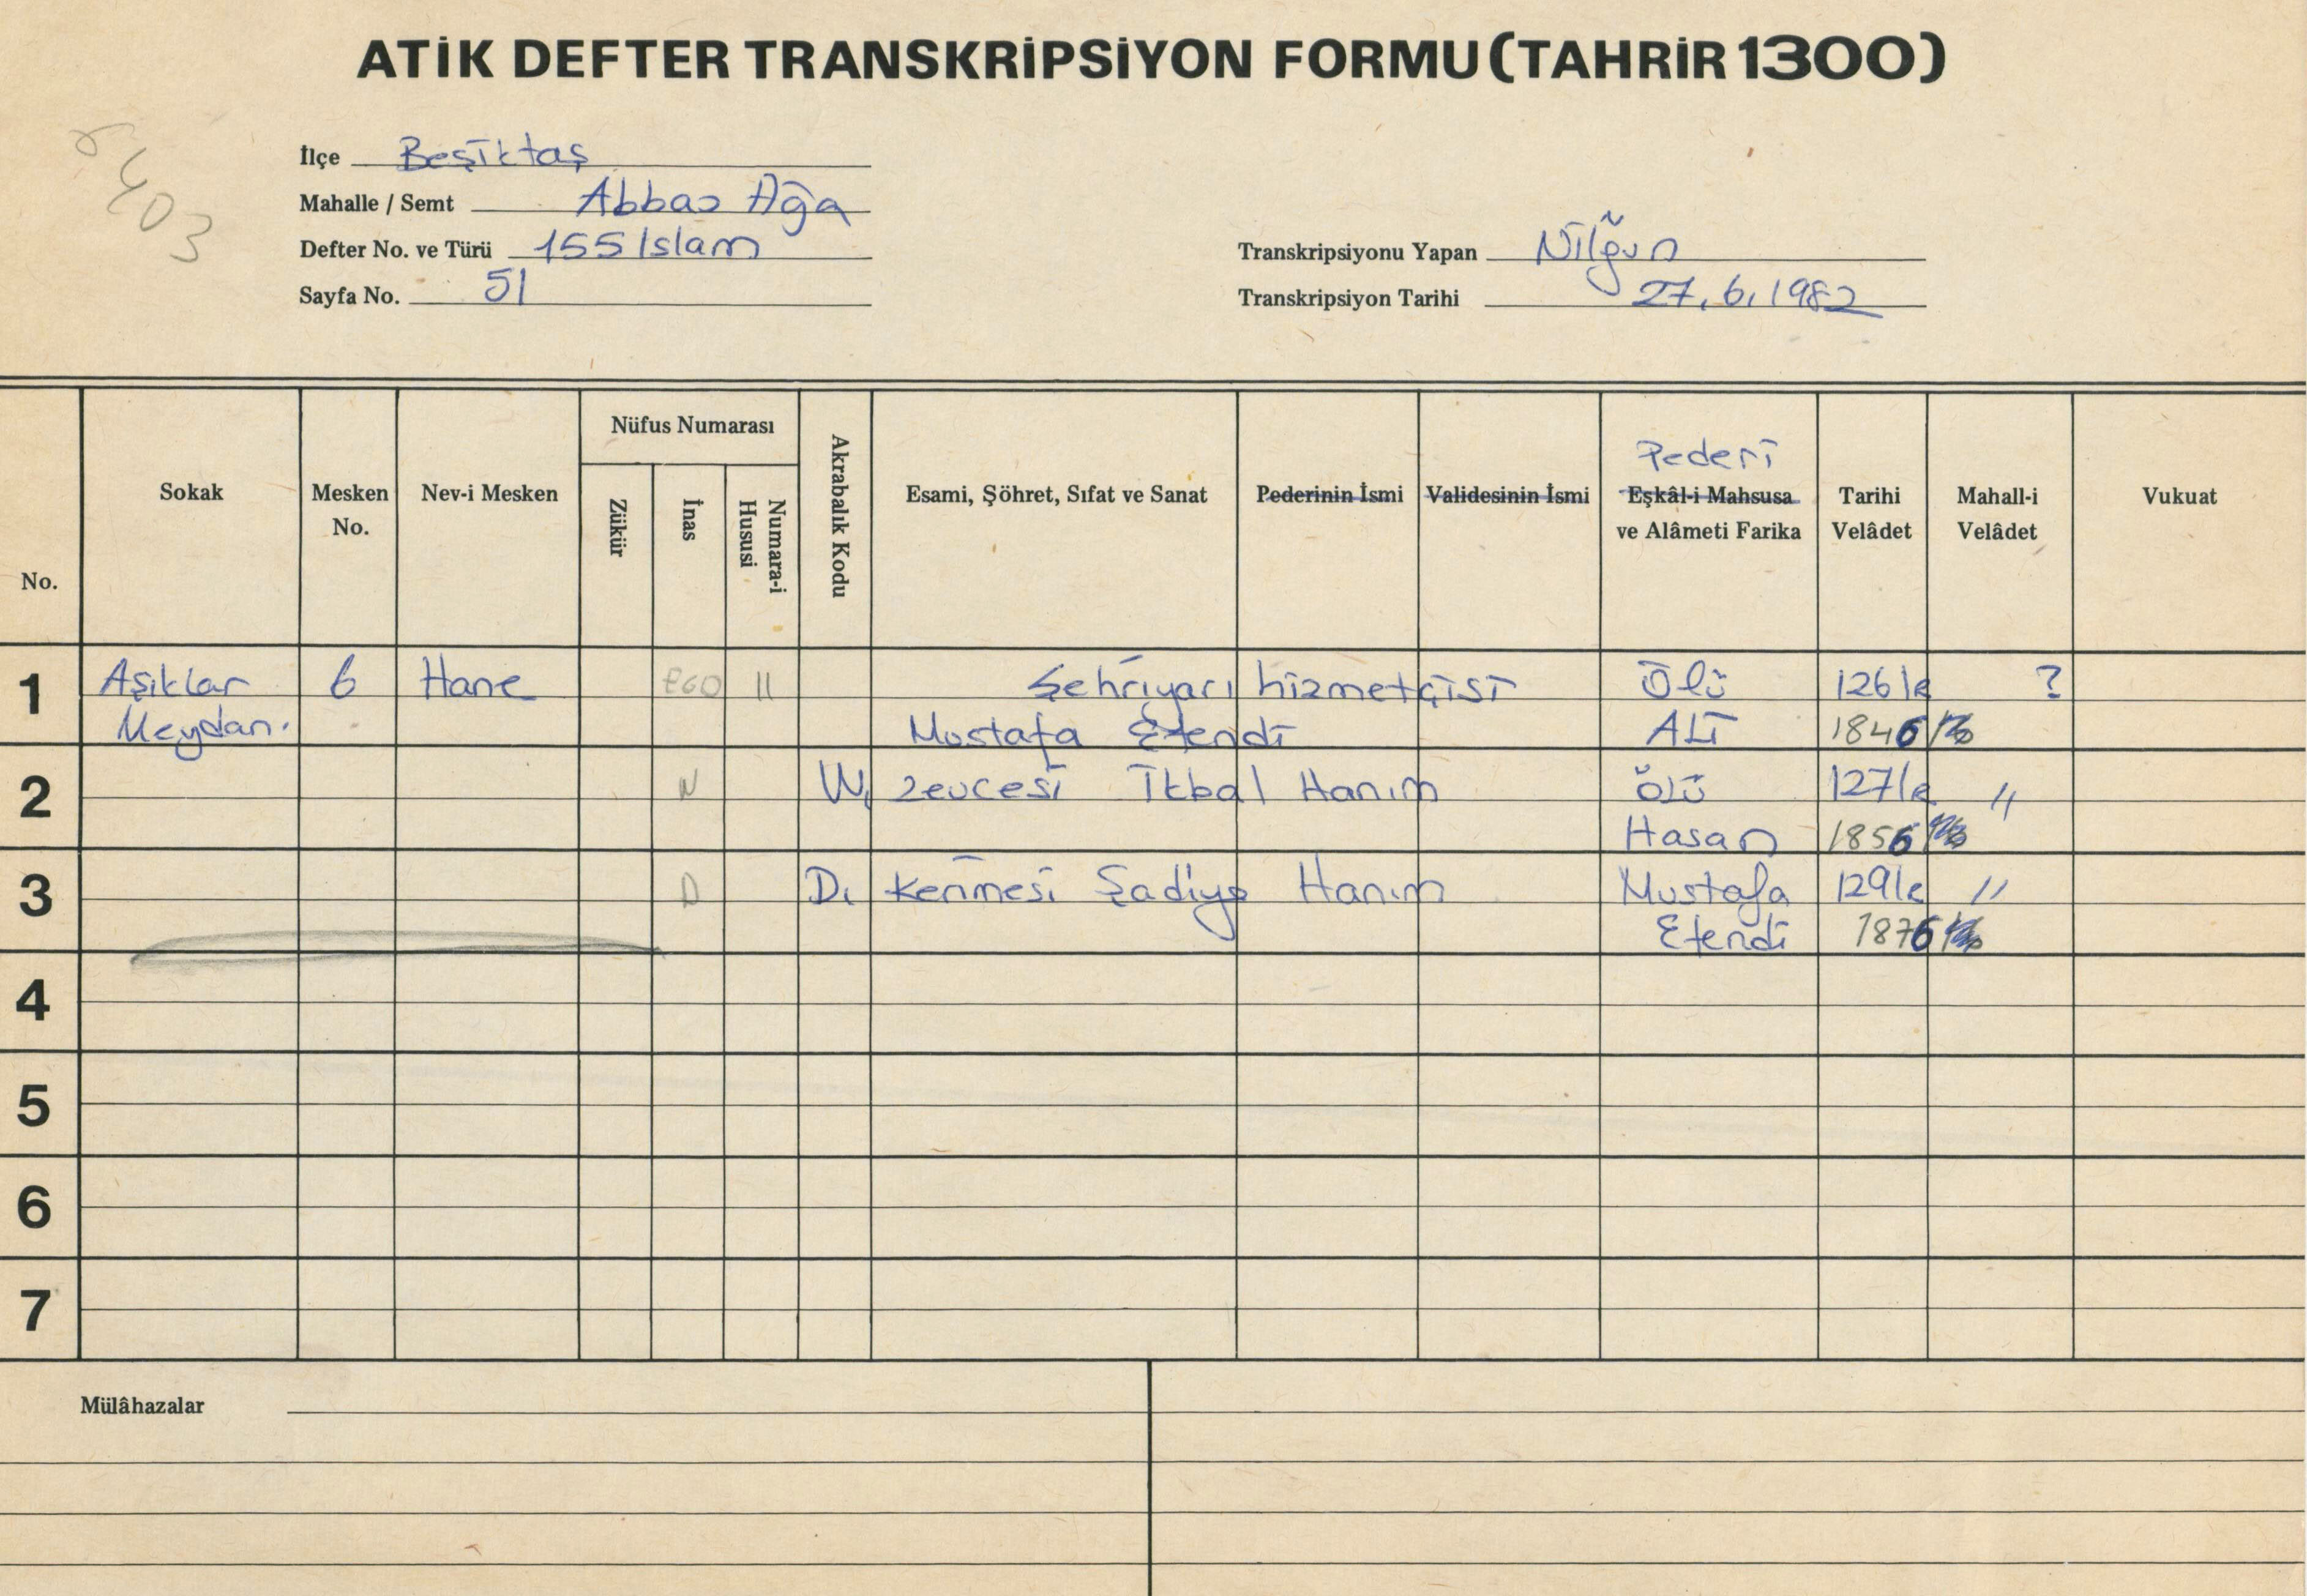 ATİK DEFTER TRANSKRİPSİYON FORMU (TAHRİR 1300)
403
İlçe Beşiktaş
Mahalle / Semt Abbas Ağa
Defter No. ve Türü 155 Islam
Sayfa No. 51
Transkripsiyonu Yapan Nilğun
Transkripsiyon Tarihi 27.6.1982
No.
Sokak
Mesken No.
Nev-i Mesken
Nüfus Numarası
Zükür
İnas
Numara-i Hususi
Akrabalık Kodu
Esami, Şöhret, Sıfat ve Sanat
Pederinin İsmi
Validesinin İsmi
Pederi
Eşkâl-i Mahsusa
ve Alâmeti Farika
Tarihi Velâdet
Mahall-i Velâdet
Vukuat
1 Aşiklar 6 Hane EGO 11 Şehriyari hizmetçisi Ölü 1261 ?
Meydan. Mustafa Efendi Ali 1846
2 W. zevcesi İkbal Hanım ölü 1271 "
Hasan 1856
3 D D. Kerimesi Şadiye Hanım Mustafa 1291 "
Efendi 1876
4
5
6
7
Mülâhazalar